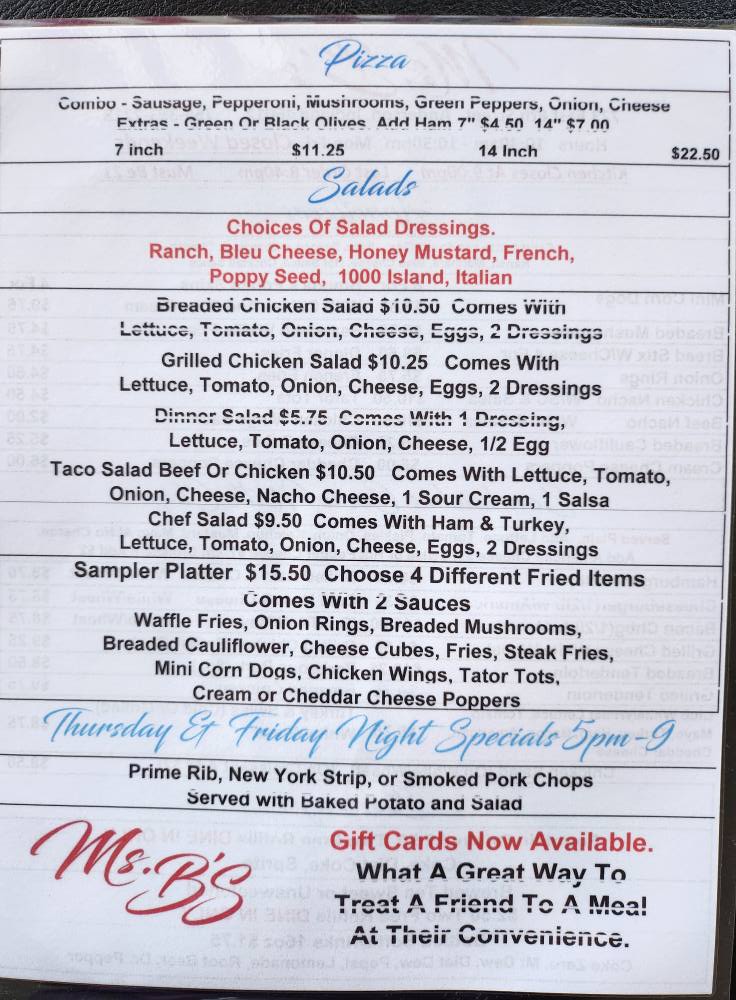 Pizza
Combo - Sausage, Pepperoni, Mushrooms, Green Peppers, Onion, Cheese
Extras - Green Or Black Olives. Add Ham 7" $4.50 14" $7.00
7 inch $11.25 14 Inch $22.50
Salads
Choices Of Salad Dressings.
Ranch, Bleu Cheese, Honey Mustard, French,
Poppy Seed, 1000 Island, Italian
Breaded Chicken Salad $10.50 Comes With
Lettuce, Tomato, Onion, Cheese, Eggs, 2 Dressings
Grilled Chicken Salad $10.25 Comes With
Lettuce, Tomato, Onion, Cheese, Eggs, 2 Dressings
Dinner Salad $5.75 Comes With 1 Dressing,
Lettuce, Tomato, Onion, Cheese, 1/2 Egg
Taco Salad Beef Or Chicken $10.50 Comes With Lettuce, Tomato,
Onion, Cheese, Nacho Cheese, 1 Sour Cream, 1 Salsa
Chef Salad $9.50 Comes With Ham & Turkey,
Lettuce, Tomato, Onion, Cheese, Eggs, 2 Dressings
Sampler Platter $15.50 Choose 4 Different Fried Items
Comes With 2 Sauces
Waffle Fries, Onion Rings, Breaded Mushrooms,
Breaded Cauliflower, Cheese Cubes, Fries, Steak Fries,
Mini Corn Dogs, Chicken Wings, Tator Tots,
Cream or Cheddar Cheese Poppers
Thursday & Friday Night Specials 5pm-9
Prime Rib, New York Strip, or Smoked Pork Chops
Served with Baked Potato and Salad
Ms. B'S
Gift Cards Now Available.
What A Great Way To
Treat A Friend To A Meal
At Their Convenience.